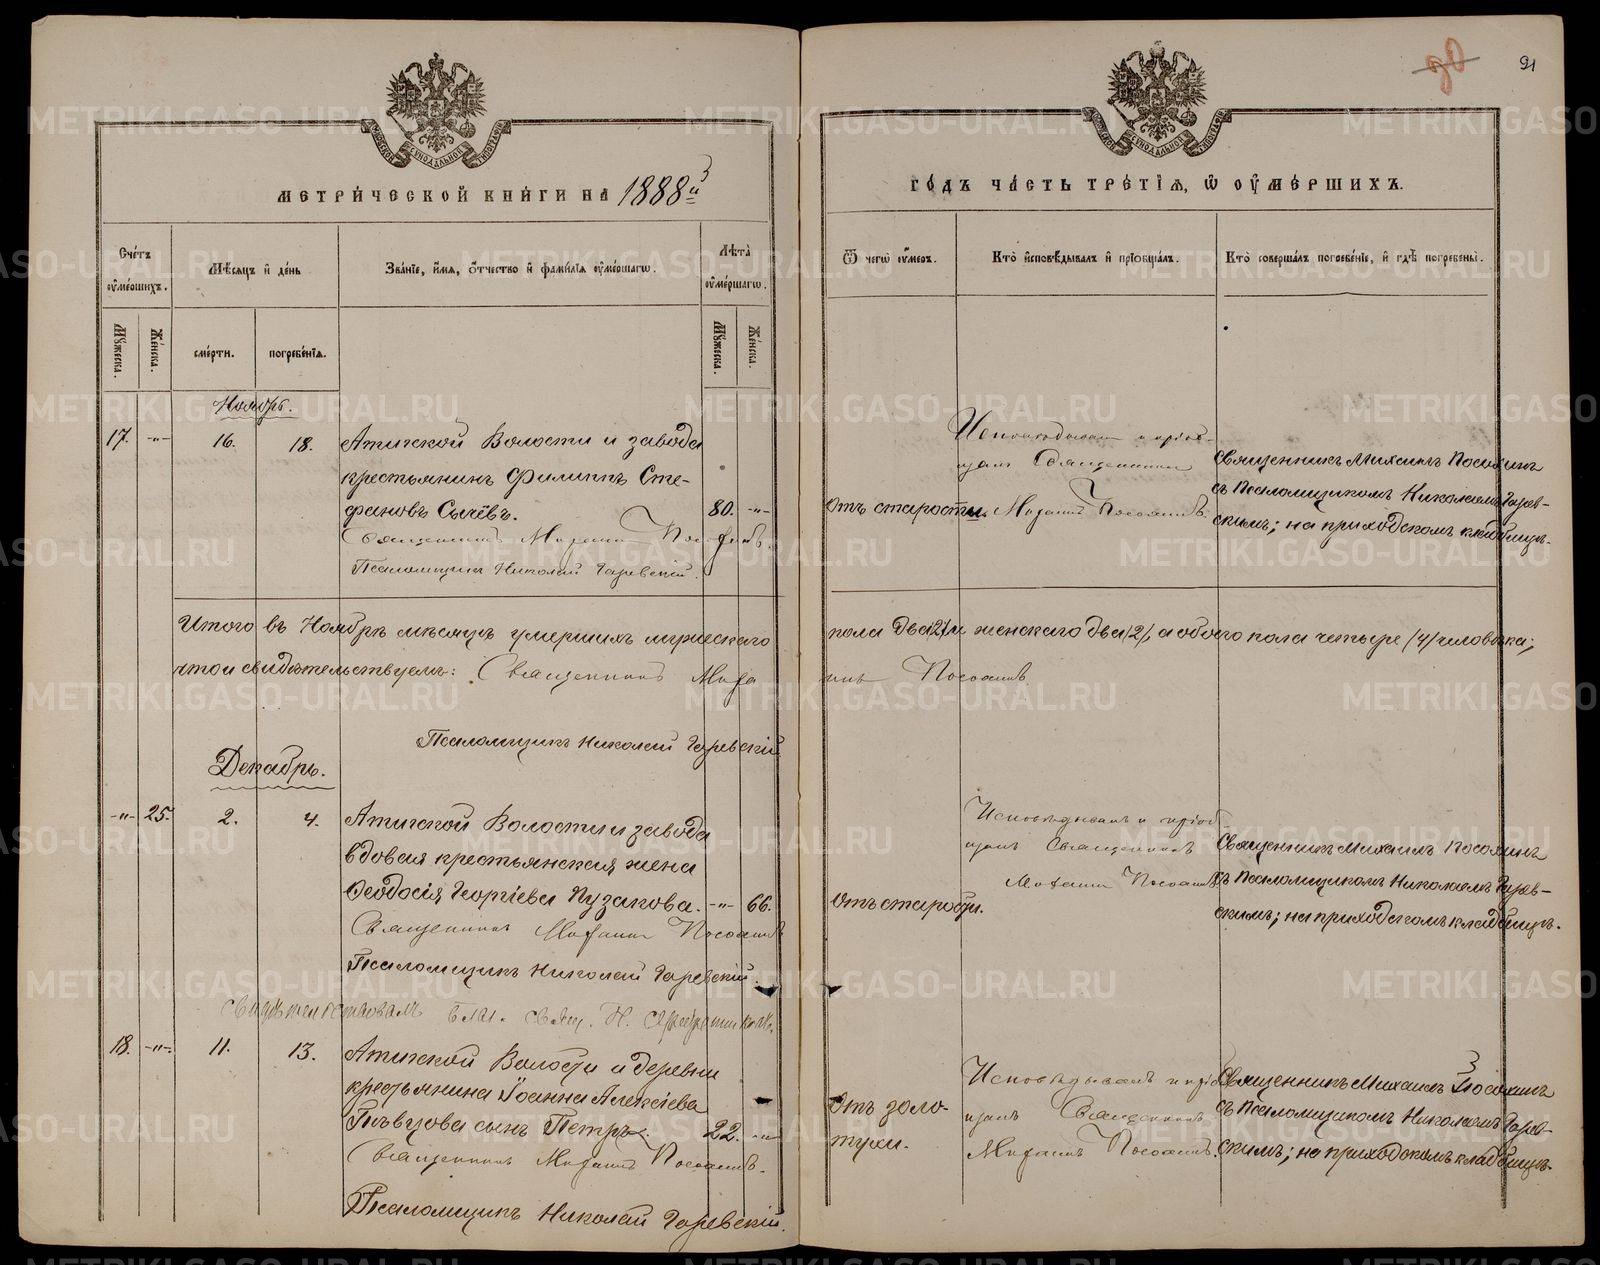 90 91
МОСКОВСКОЙ СѴНОДАЛЬНОЙ ТИПОГРАФІИ
МОСКОВСКОЙ СѴНОДАЛЬНОЙ ТИПОГРАФІИ
МЕТРИЧЕСКОЙ КНИГИ НА 1888й
ГОДЪ ЧАСТЬ ТРЕТІЯ, Ѡ ОУМЕРШИХЪ.
Счетъ оумершихъ.
Мѣсяцъ и день
Званіе, имя, отчество и фамилія оумершагѡ.
Лѣта оумершагѡ.
Ѿ чегѡ оумеръ.
Кто исповѣдывалъ и пріобщалъ.
Кто совершалъ погребеніе, и гдѣ погребены.
Мужеска.
Женска.
смерти.
погребенія.
Мужеска.
Женска.
Ноябрь.
17. -"- 16. 18. Атигской Волости и завода
крестьянинъ Филиппъ Сте-
фановъ Сычёвъ. 80. -"-
Священникъ Михаилъ Посохинъ.
Псаломщикъ Николай Гаревскій.
отъ старости.
Исповѣдывалъ и пріоб-
щалъ Священникъ
Михаилъ Посохинъ.
Священникъ Михаилъ Посохинъ
съ Псаломщикомъ Николаемъ Гарев-
скимъ; на приходскомъ кладбищѣ.
Итого въ Ноябрѣ мѣсяцѣ умершихъ мужескаго
пола два /2/ и женскаго два /2/, а обоего пола четыре /4/ человѣка;
что и свидѣтельствуемъ: Священникъ Миха
илъ Посохинъ
Псаломщикъ Николай Гаревскій
Декабрь.
-"- 25. 2. 4. Атигской Волости и завода
вдовая крестьянская жена
Ѳеодосія Георгіева Пузакова. -"- 66.
Священникъ Михаилъ Посохинъ
Псаломщикъ Николай Гаревскій.
отъ старости.
Исповѣдывалъ и пріоб-
щалъ Священникъ
Михаилъ Посохинъ
Священникъ Михаилъ Посохинъ
съ Псаломщикомъ Николаемъ Гарев-
скимъ; на приходскомъ кладбищѣ.
Свидѣтельствовалъ Благ. Свящ. Н.
18. -"- 11. 13. Атигской Волости и деревни
крестьянина Іоанна Алексіева
Пѣвцова сынъ Петръ. 22. -"-
Священникъ Михаилъ Посохинъ.
Псаломщикъ Николай Гаревскій.
отъ золо-
тухи.
Исповѣдывалъ и пріоб
щалъ Священникъ
Михаилъ Посохинъ.
Священникъ Михаилъ Посохинъ
съ Псаломщикомъ Николаемъ Гарев-
скимъ; на приходскомъ кладбищѣ.
METRIKI.GASO-URAL.RU